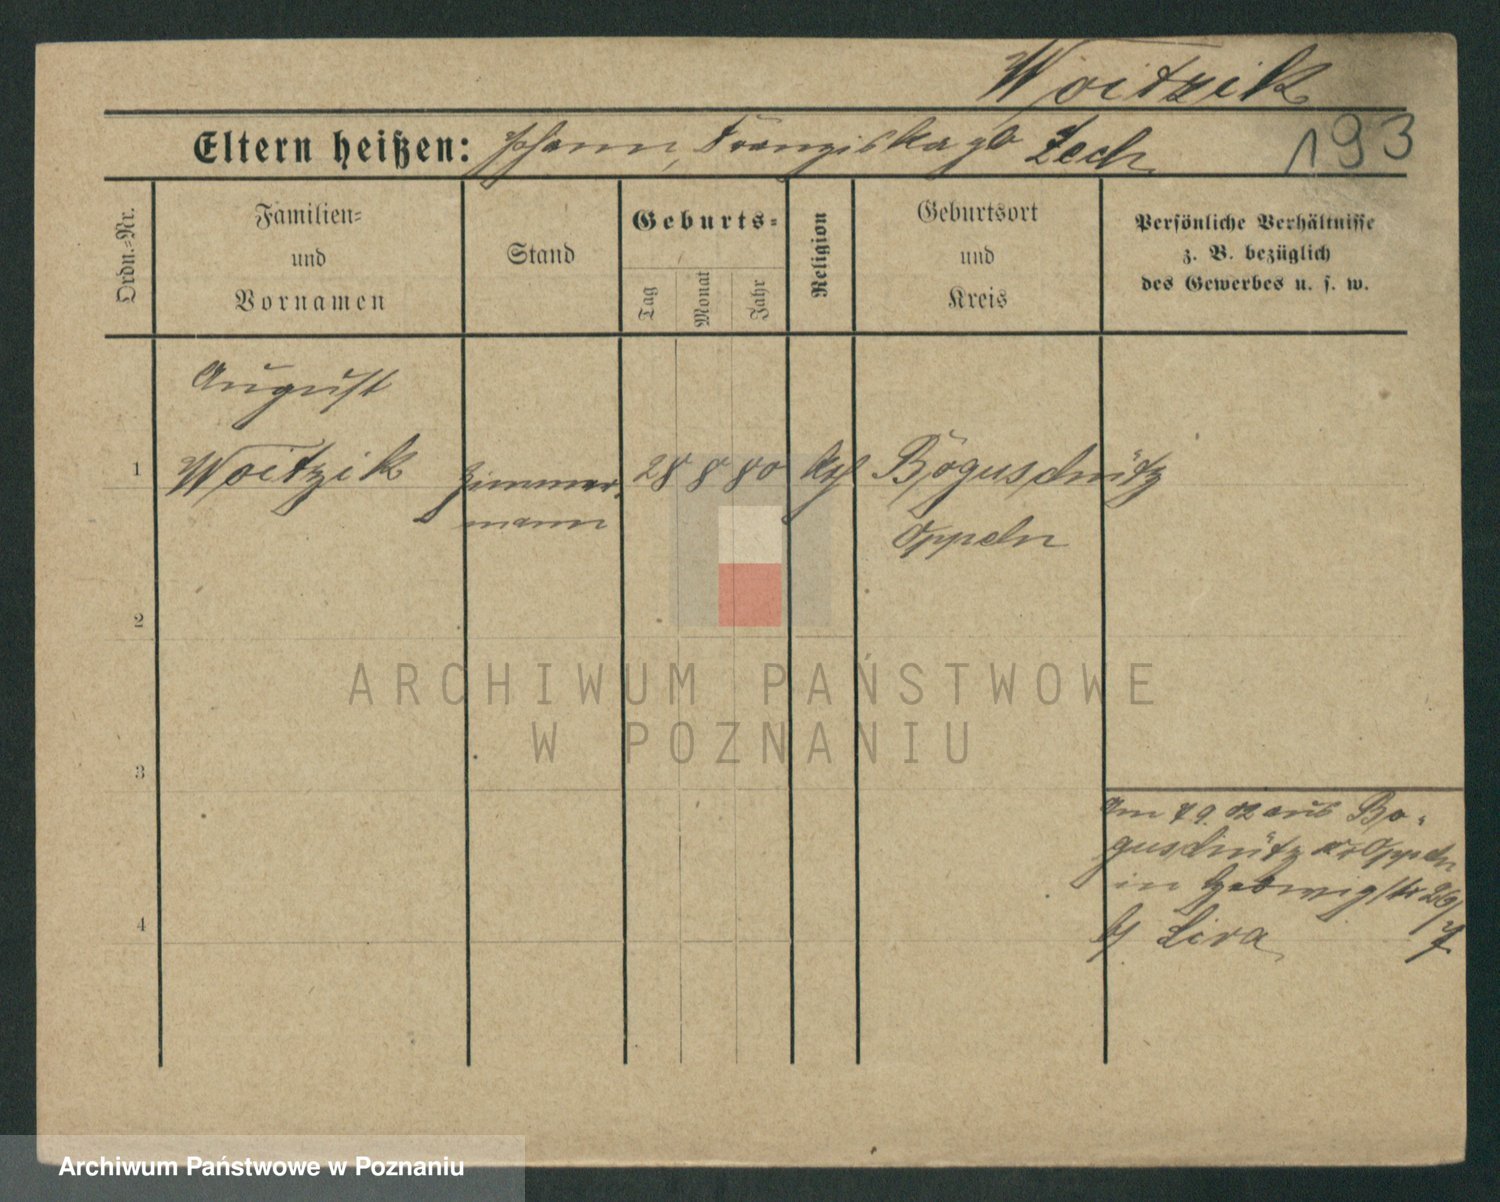 Woitzik
Eltern heißen: Johann, Franziska gb Zech
193
Ordn.=Nr.
Familien=
und
Vornamen
Stand
Geburts=
Tag
Monat
Jahr
Religion
Geburtsort
und
Kreis
Persönliche Verhältnisse
z. B. bezüglich
des Gewerbes u. s. w.
August
1 Woitzik Zimmer 28 8 80 Boguschütz
mann Oppeln
2
3
4
Am 02 aus Bo-
guschütz Kr Oppeln
in Hedwigstr
Lira
ARCHIWUM PAŃSTWOWE
W POZNANIU
Archiwum Państwowe w Poznaniu